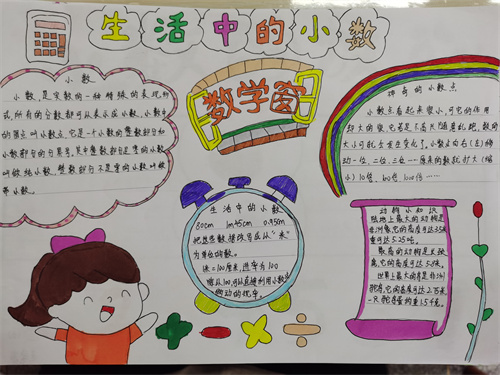 生活中的小数
数学窗
小数
小数,是实数的一种特殊的表现形
式,所有的分数都可以表示成小数,小数中
的圆点叫小数点,它是一个小数的整数部分和
小数部分的分界号,其中整数部分是零的小数
叫做纯小数,整数部分不是零的小数叫做
带小数。
神奇的小数点
小数点看起来很小,可它的作用
却大的很,它若是不高兴随意乱跑,数的
大小可就会发生变化了,小数点向右(左)移
动一位、二位、三位……原来的数就扩大(缩
小)10倍、100倍、1000倍……
生活中的小数
80cm 1m45cm 0.95m
把这些数据改写成以“米”
为单位的数。
1米=100厘米,进率为100
动物小知识
陆地上最大的动物是
非洲象,它的高度可达3.5米
重可达5.25吨。
最高的动物是长颈
鹿,它的高度可达5.8米。
世界上最大的鸟是非洲
鸵鸟,它的高度可达2.75米